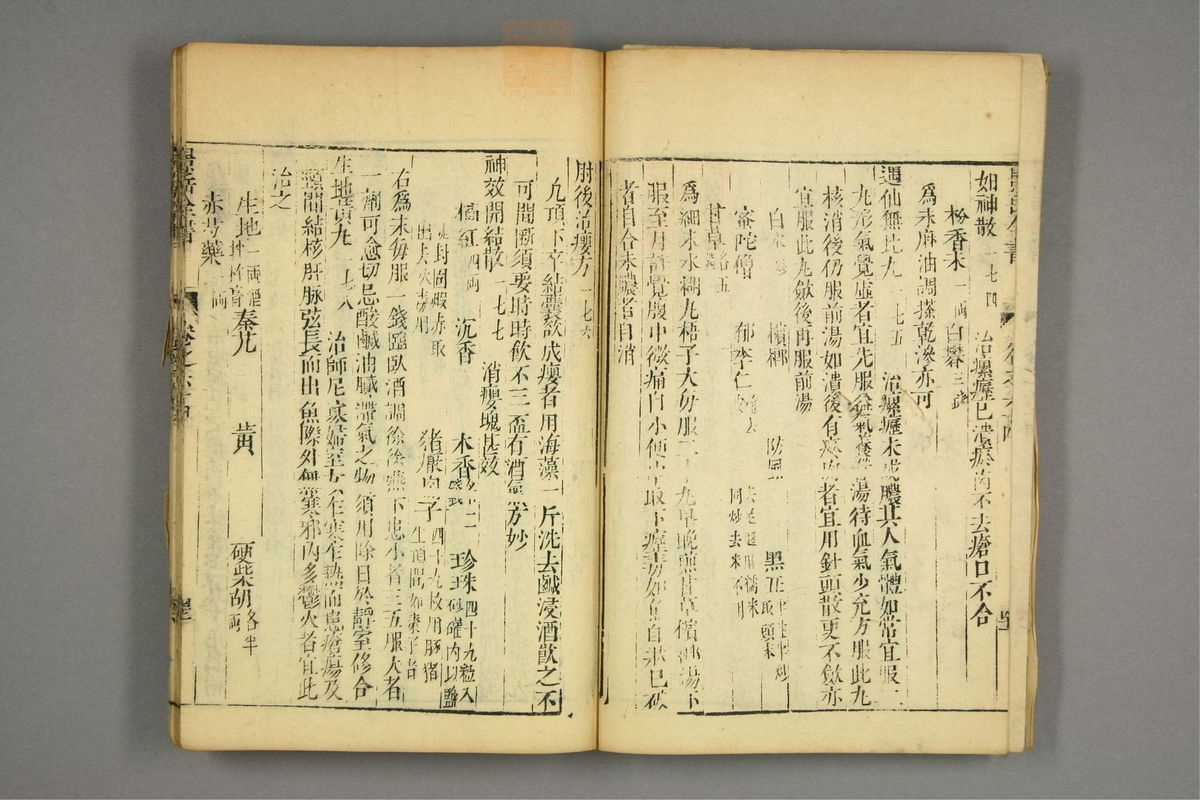 如神散 一七四 治瘰癧已潰瘀肉不去瘡口不合
松香末 一兩 白礬 三錢
爲末麻油調搽乾滲亦可
遇仙無比丸 一七五 治瘰癧未成膿其人氣體如常宜服
丸形氣覺虛者宜先服益氣養榮湯待血氣少充方服此丸
核消後仍服前湯如潰後有瘀肉者宜用針頭散更不斂亦
宜服此丸斂後再服前湯
白朮 檳榔 防風 黑丑 半生半炒 取頭末
蜜陀僧 郁李仁 斑蝥 去翅足用糯米 同炒去米不用
甘草 各五
爲細末水糊丸梧子大每服二十丸早晚煎甘草檳榔湯下
服至月許覺腹中微痛自小便中取下癧毒如魚目狀已破
者自合未膿者自消
肘後治癭方 一七六
凡項下卒結囊欲成癭者用海藻一斤洗去鹹浸酒飲之不
可間斷須要時時飲不三盃有酒氣方妙
神效開結散 一七七 消癭塊甚效
橘紅 四兩 沉香 木香 各二錢 珍珠 四十九粒入砂礶內以鹽
泥封固煆赤取出去火毒用 豬靨肉子 四十九枚用豚豬生項間如棗子者
右爲末每服一錢臨臥酒調徐徐嚥下患小者三五服大者
一劑可愈切忌酸鹹油膩滯氣之物須用除日於靜室修合
生地黃丸 一七八 治師尼寡婦室女乍寒乍熱而患瘡瘍及
頸間結核肝脉弦長而出魚際外無寒邪內多鬱火者宜此
治之
生地 一兩酒拌杵膏 秦艽 黃 硬柴胡 各半兩
赤芍藥 一兩